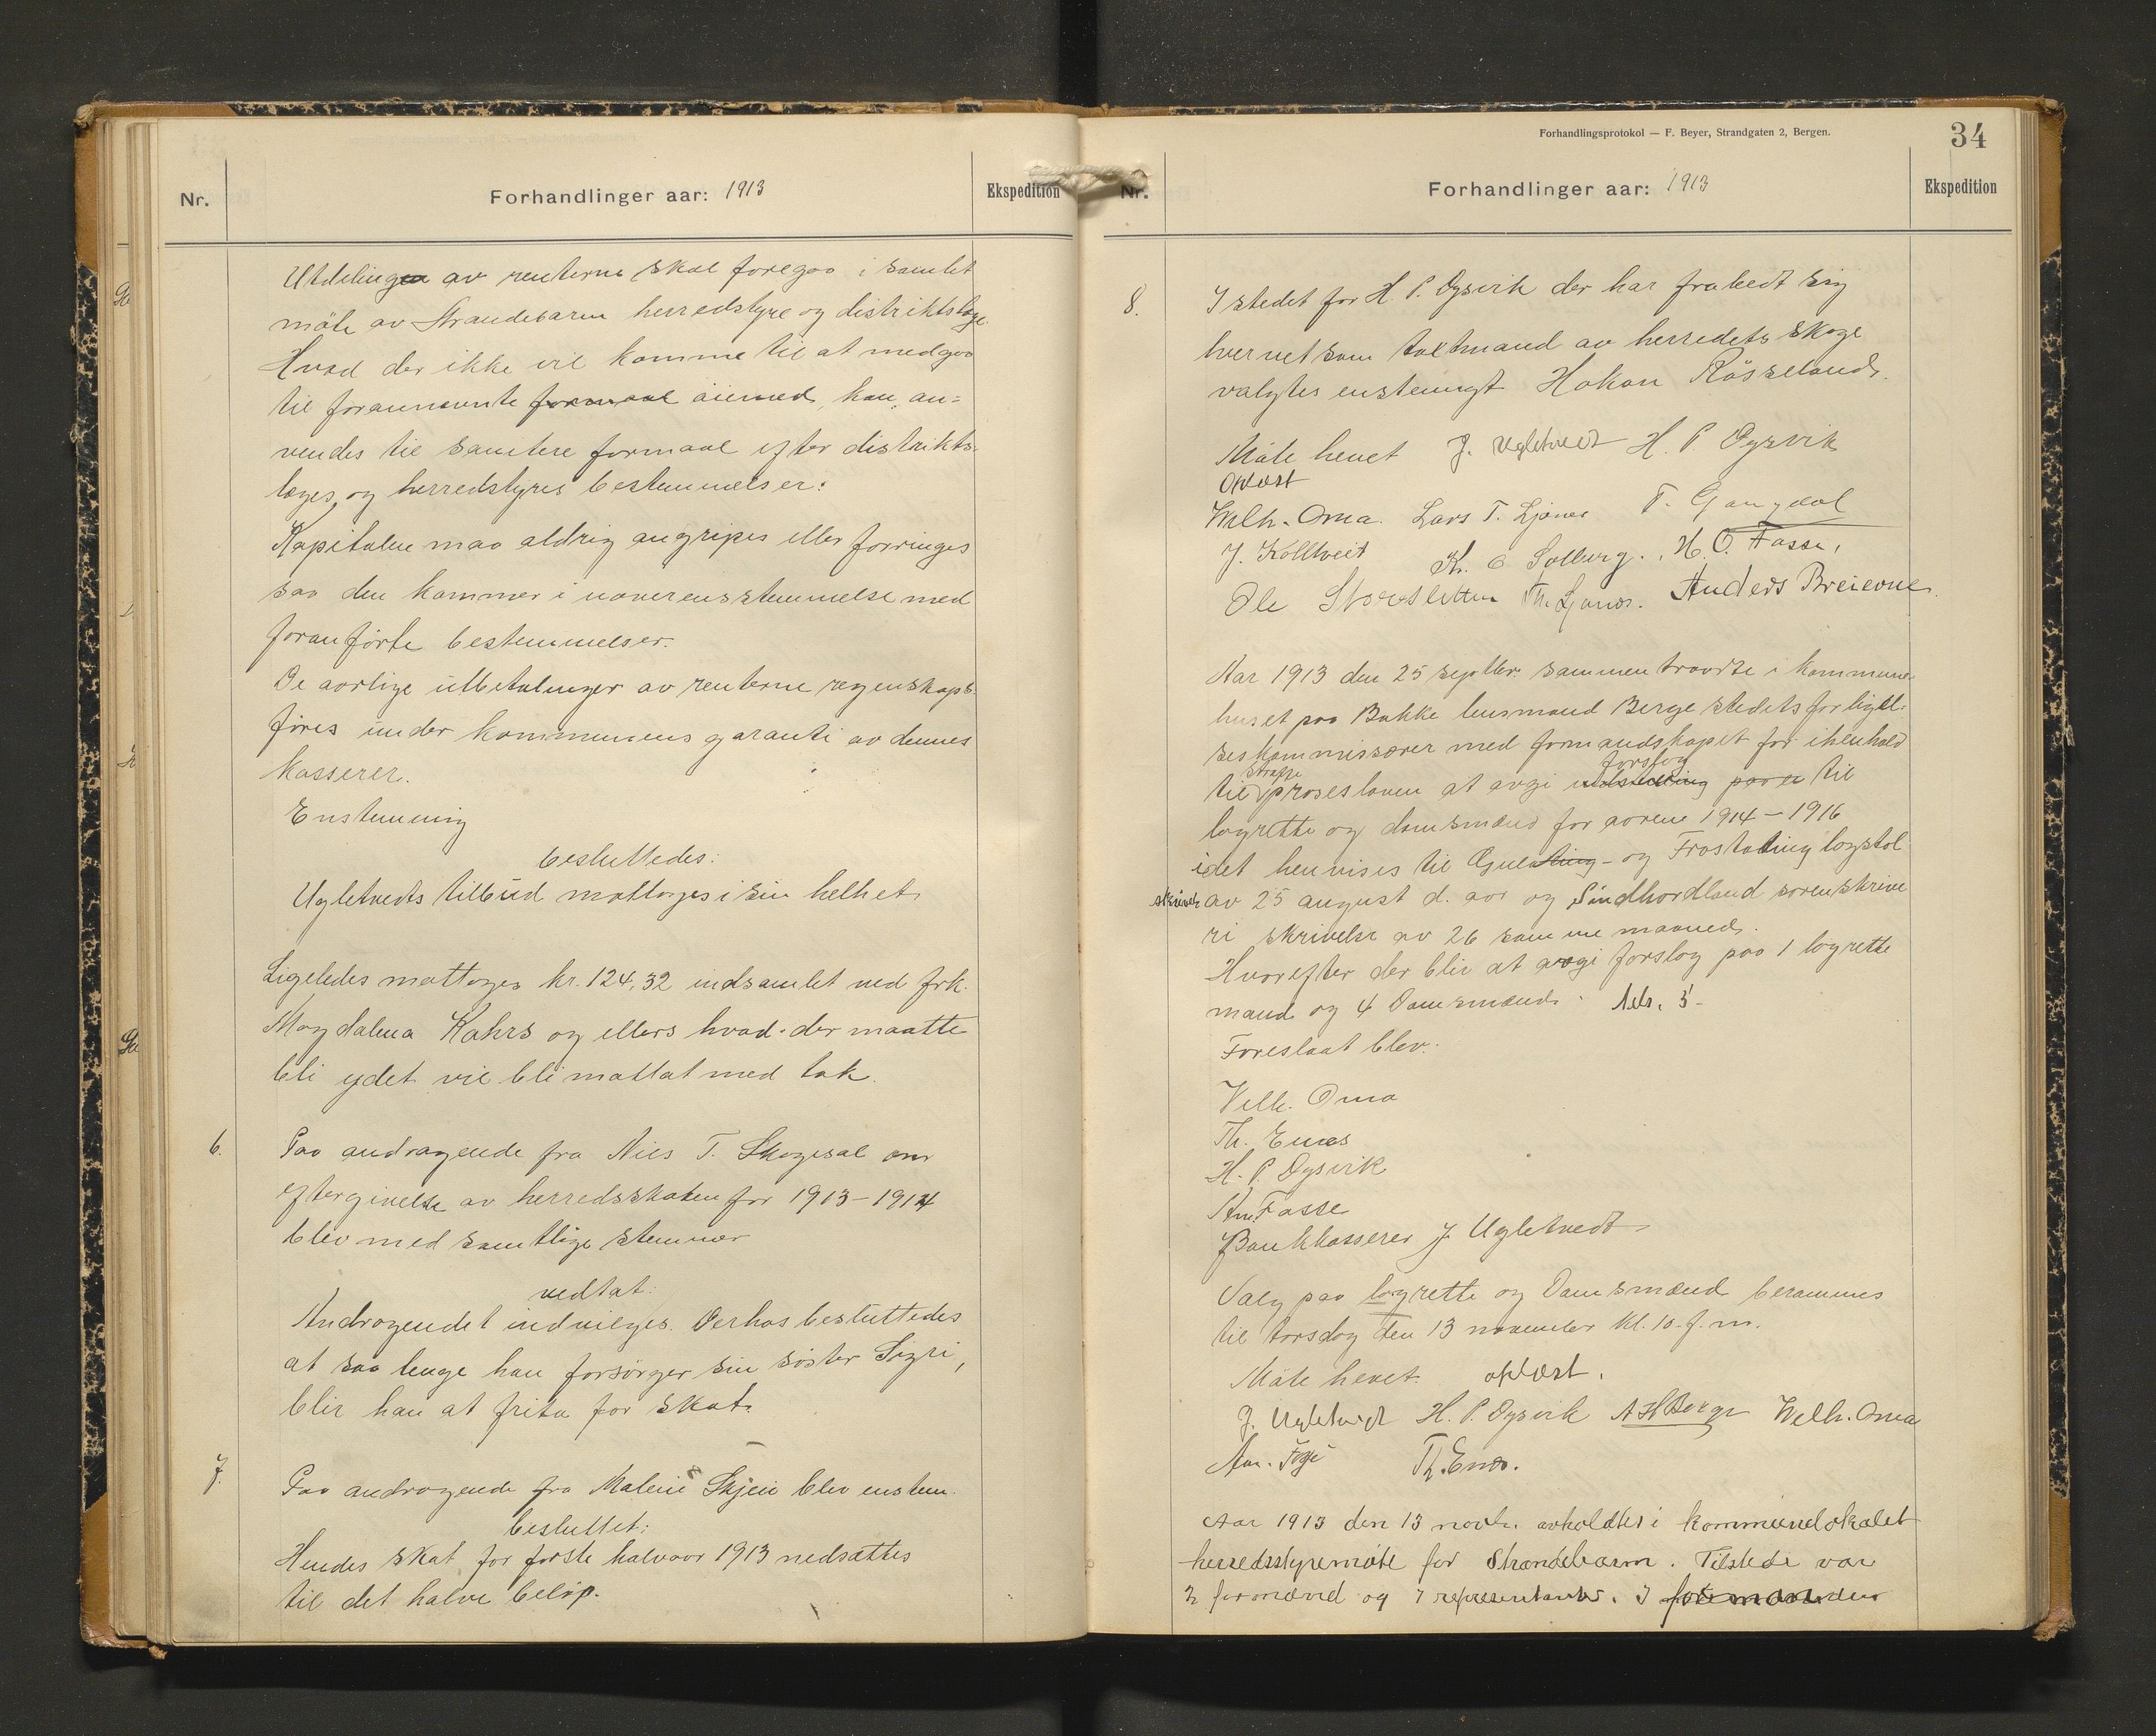 Nr.
Forhandlinger aar: 1913
Ekspedition
Utdelingen av renterne skal foregaa i samlet
möte av Strandebarm herredstyre og distriktslæge.
Hvad der ikke vil komme til at medgaa
til forannævnte formaal öiemed, kan an=
vendes til sanitere formaal efter distrikts-
læges og herredstyres bestemmelser.
Kapitalen maa aldrig angripes eller forringes
saa den kommer i uoverensstemmelse med
foranförte bestemmelser.
De aarlige utbetalinger av renterne regenskaps-
föres under kommunens garanti av dennes
kasserer.
Enstemmig
besluttedes:
Ugletvedts tilbud mottages i sin helhet.
Ligeledes mottages kr. 124,32 indsamlet ved frk.
Magdalena Kahrs og ellers hvad der maatte
bli ydet vil bli mottat med tak.
6.
Paa andragende fra Nils T. Skogesal om
eftergivelse av herredsskaten for 1913-1914
blev med samtlige stemmer
vedtat:
Andragendet indvilges. Derhos besluttedes
at saa lenge han forsörger sin söster Sigri,
blir han at frita for skat.
7.
Paa andragende fra Malene Skjeie blev enstem.
besluttet:
Hendes skat for förste halvaar 1913 nedsættes
til det halve belöp.
Forhandlingsprotokol — F. Beyer, Strandgaten 2, Bergen.
34
Nr.
Forhandlinger aar: 1913
Ekspedition
8.
I stedet for H. P. Øysvik der har frabedt sig
hvervet som tillitmand av herredets skoge
valgtes enstemigt Hakon Rösseland.
Möte hevet J. Ugletveit H. P. Øysvik
Oplæst
Wilh. Oma. Lars T. Ljones T. Gangdal
J. Kolltveit K. O. Solberg. H. O. Fosse,
Ole Storesletten Th. Ljones. Anders Breievne.
Aar 1913 den 25 septbr. sammentraadte i kommune-
huset paa Bakke lensmand Berge stedets forligel-
seskommissærer med formandskapet for i henhold
til straffe prosesloven at avgi indstilling paa forslag til
lagrette og domsmænd for aarene 1914-1916
idet henvises til Gulating- og Frostating lagstol
skrivelse av 25 august d. aar og Sündhordland sorenskrive
ri skrivelse av 26 samme maaned.
Hvorefter der blir at avgi forslag paa 1 lagrette
mand og 4 Domsmænd. Tils. 5-
Foreslaat blev:
Vilh. Oma
Th. Enes
H. P. Øysvik
Am. Fosse
Bankkasserer J. Ugletvedt
Valg paa lagrette og Domsmænd berammes
til torsdag den 13 november kl. 10 f. m.
Möte hevet. oplæst.
J. Ugletveit H. P. Øysvik A H Berge Wilh. Oma
Th. Enes.
Aar 1913 den 13 novbr. avholdtes i kommunelokalet
herredsstyremöte for Strandebarm. Tilstede var
2 formænd og 7 representanter. I formandens